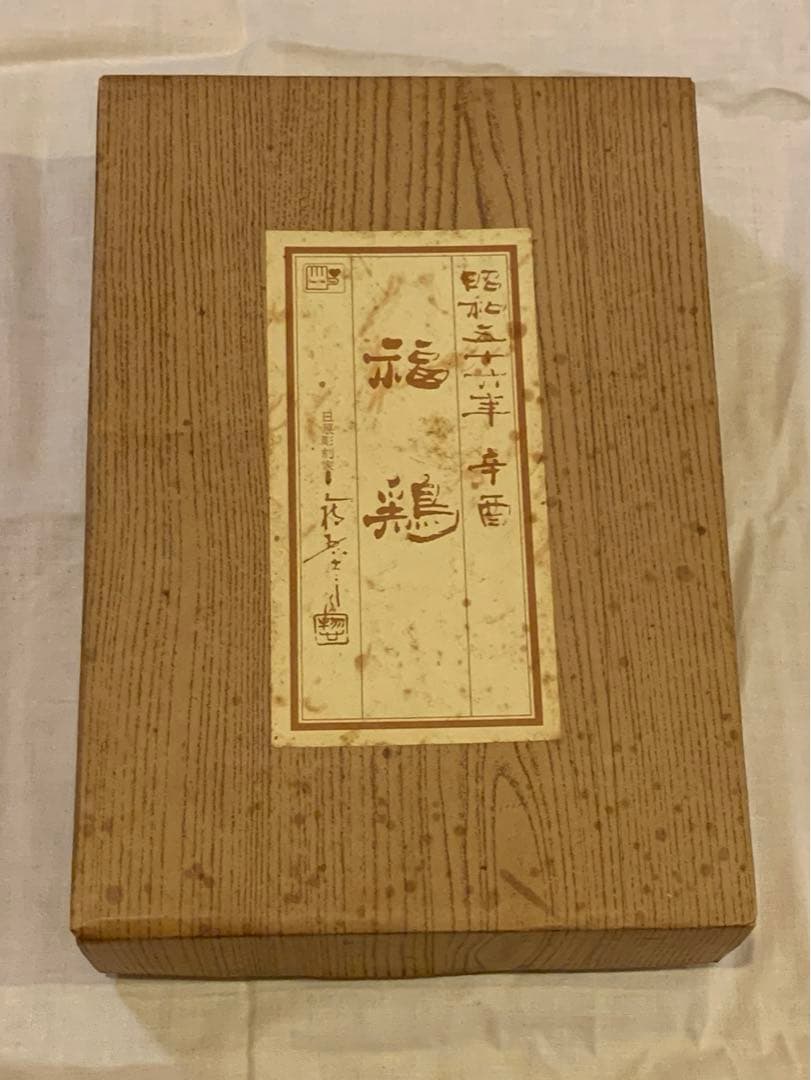 昭和五十六年 辛酉
福鶏
日展彫刻家